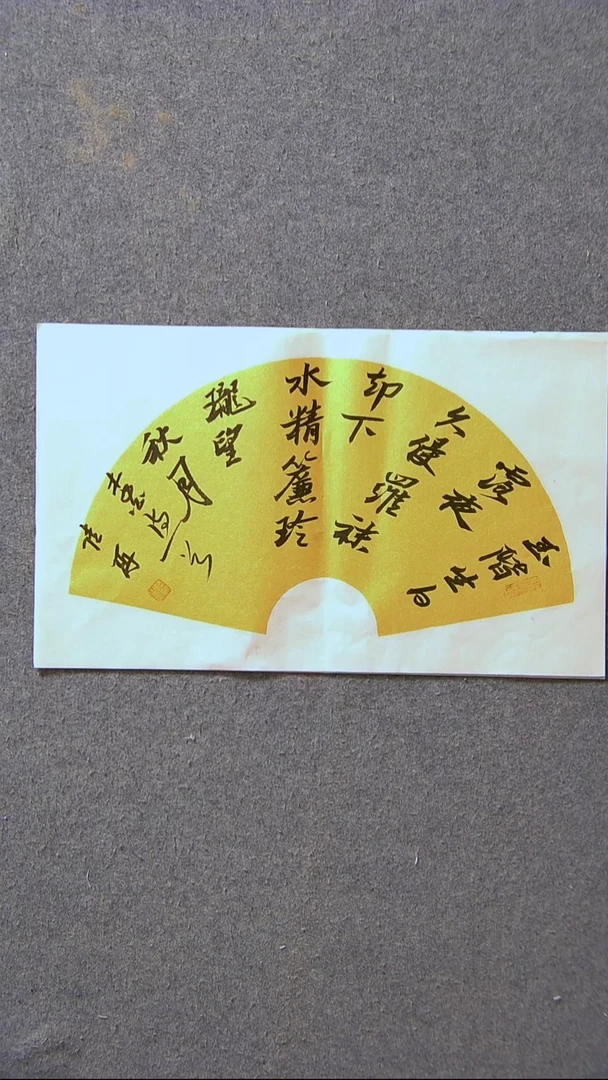 玉階生白
露夜
久侵羅襪
却下
水精簾玲
瓏望
秋月